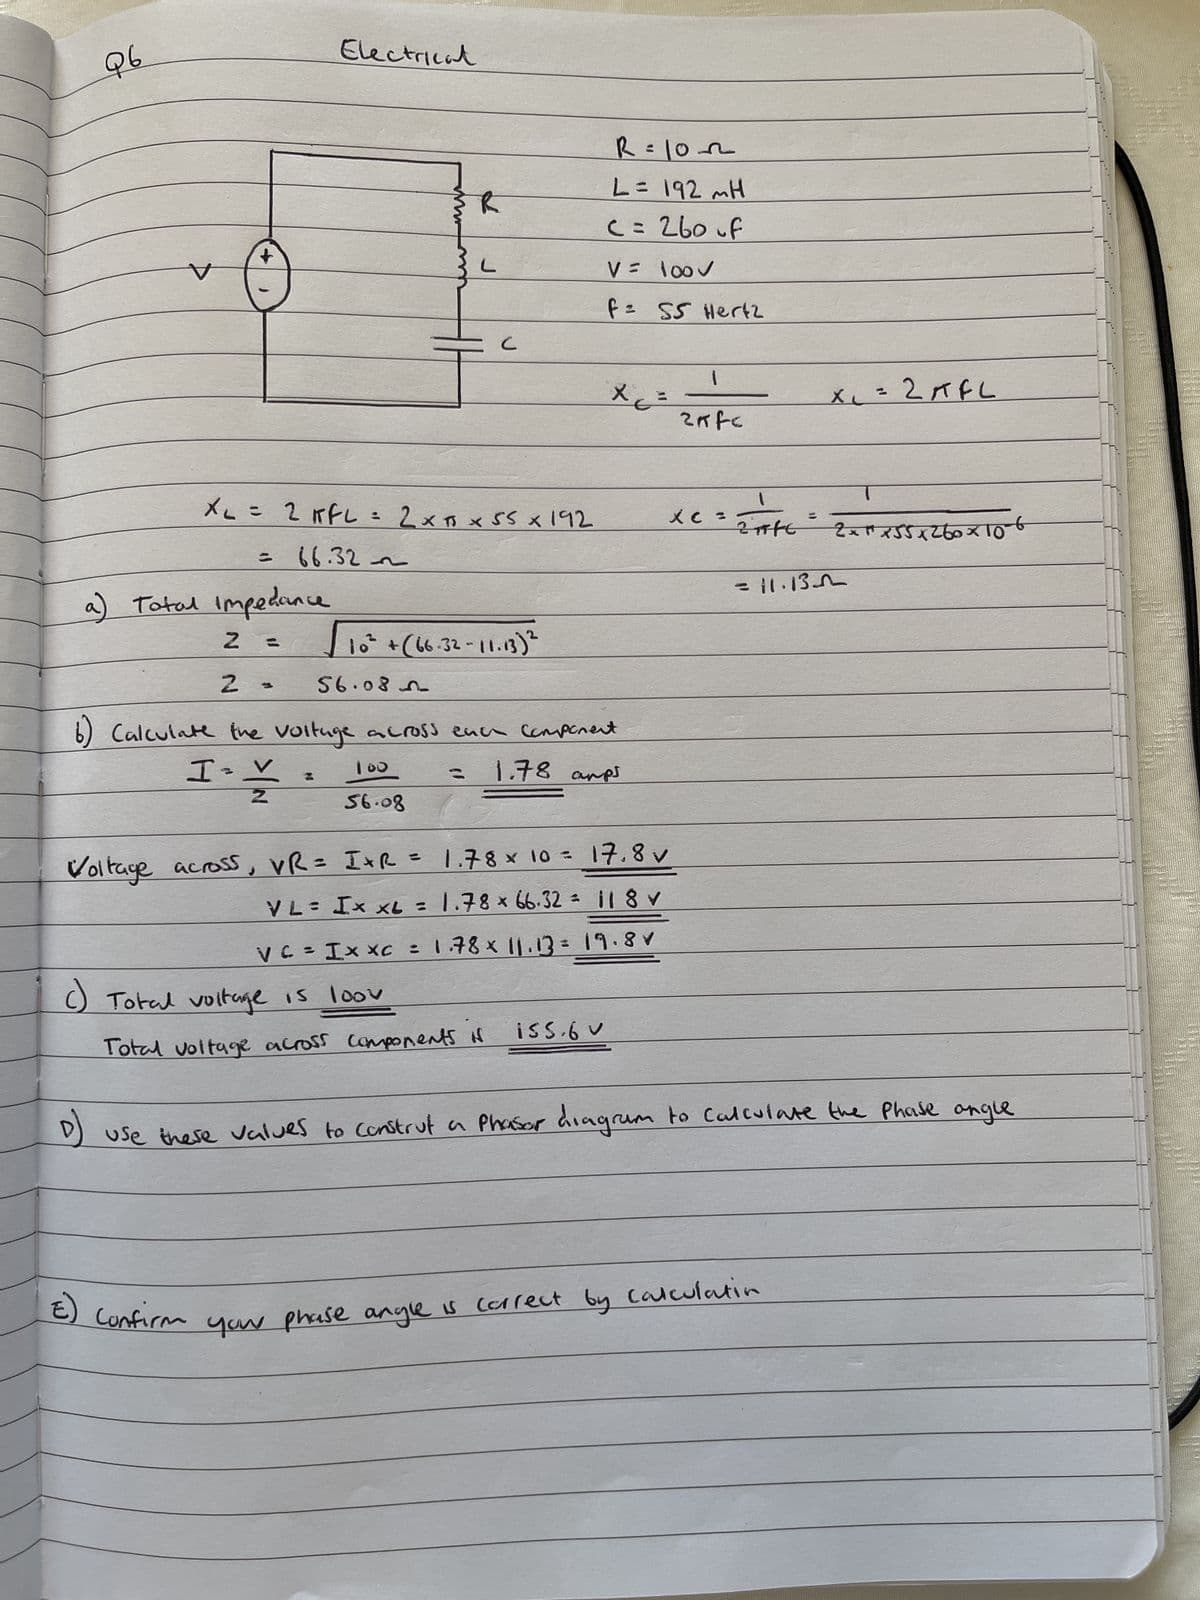 Q6 Electrical
R = 10 Ω
L = 192 mH
R
C = 260 uf
V + -
L
V = 100V
f = 55 Hertz
C
Xc = 1 / 2πfc XL = 2πfL
XL = 2πfL = 2 x π x 55 x 192 xc = 1 / 2πfc = 1 / 2xπx55x260x10^-6
= 66.32 Ω
= 11.13Ω
a) Total impedance
Z = √10² + (66.32 - 11.13)²
Z = 56.08 Ω
b) Calculate the voltage across each component
I = V / Z = 100 / 56.08 = 1.78 amps
Voltage across, VR = I x R = 1.78 x 10 = 17.8 v
VL = I x xL = 1.78 x 66.32 = 118 v
VC = I x xc = 1.78 x 11.13 = 19.8 v
c) Total voltage is 100v
Total voltage across components is 155.6 v
D) use these values to construt a Phasor diagram to calculate the Phase angle
E) Confirm your phase angle is correct by calculatin